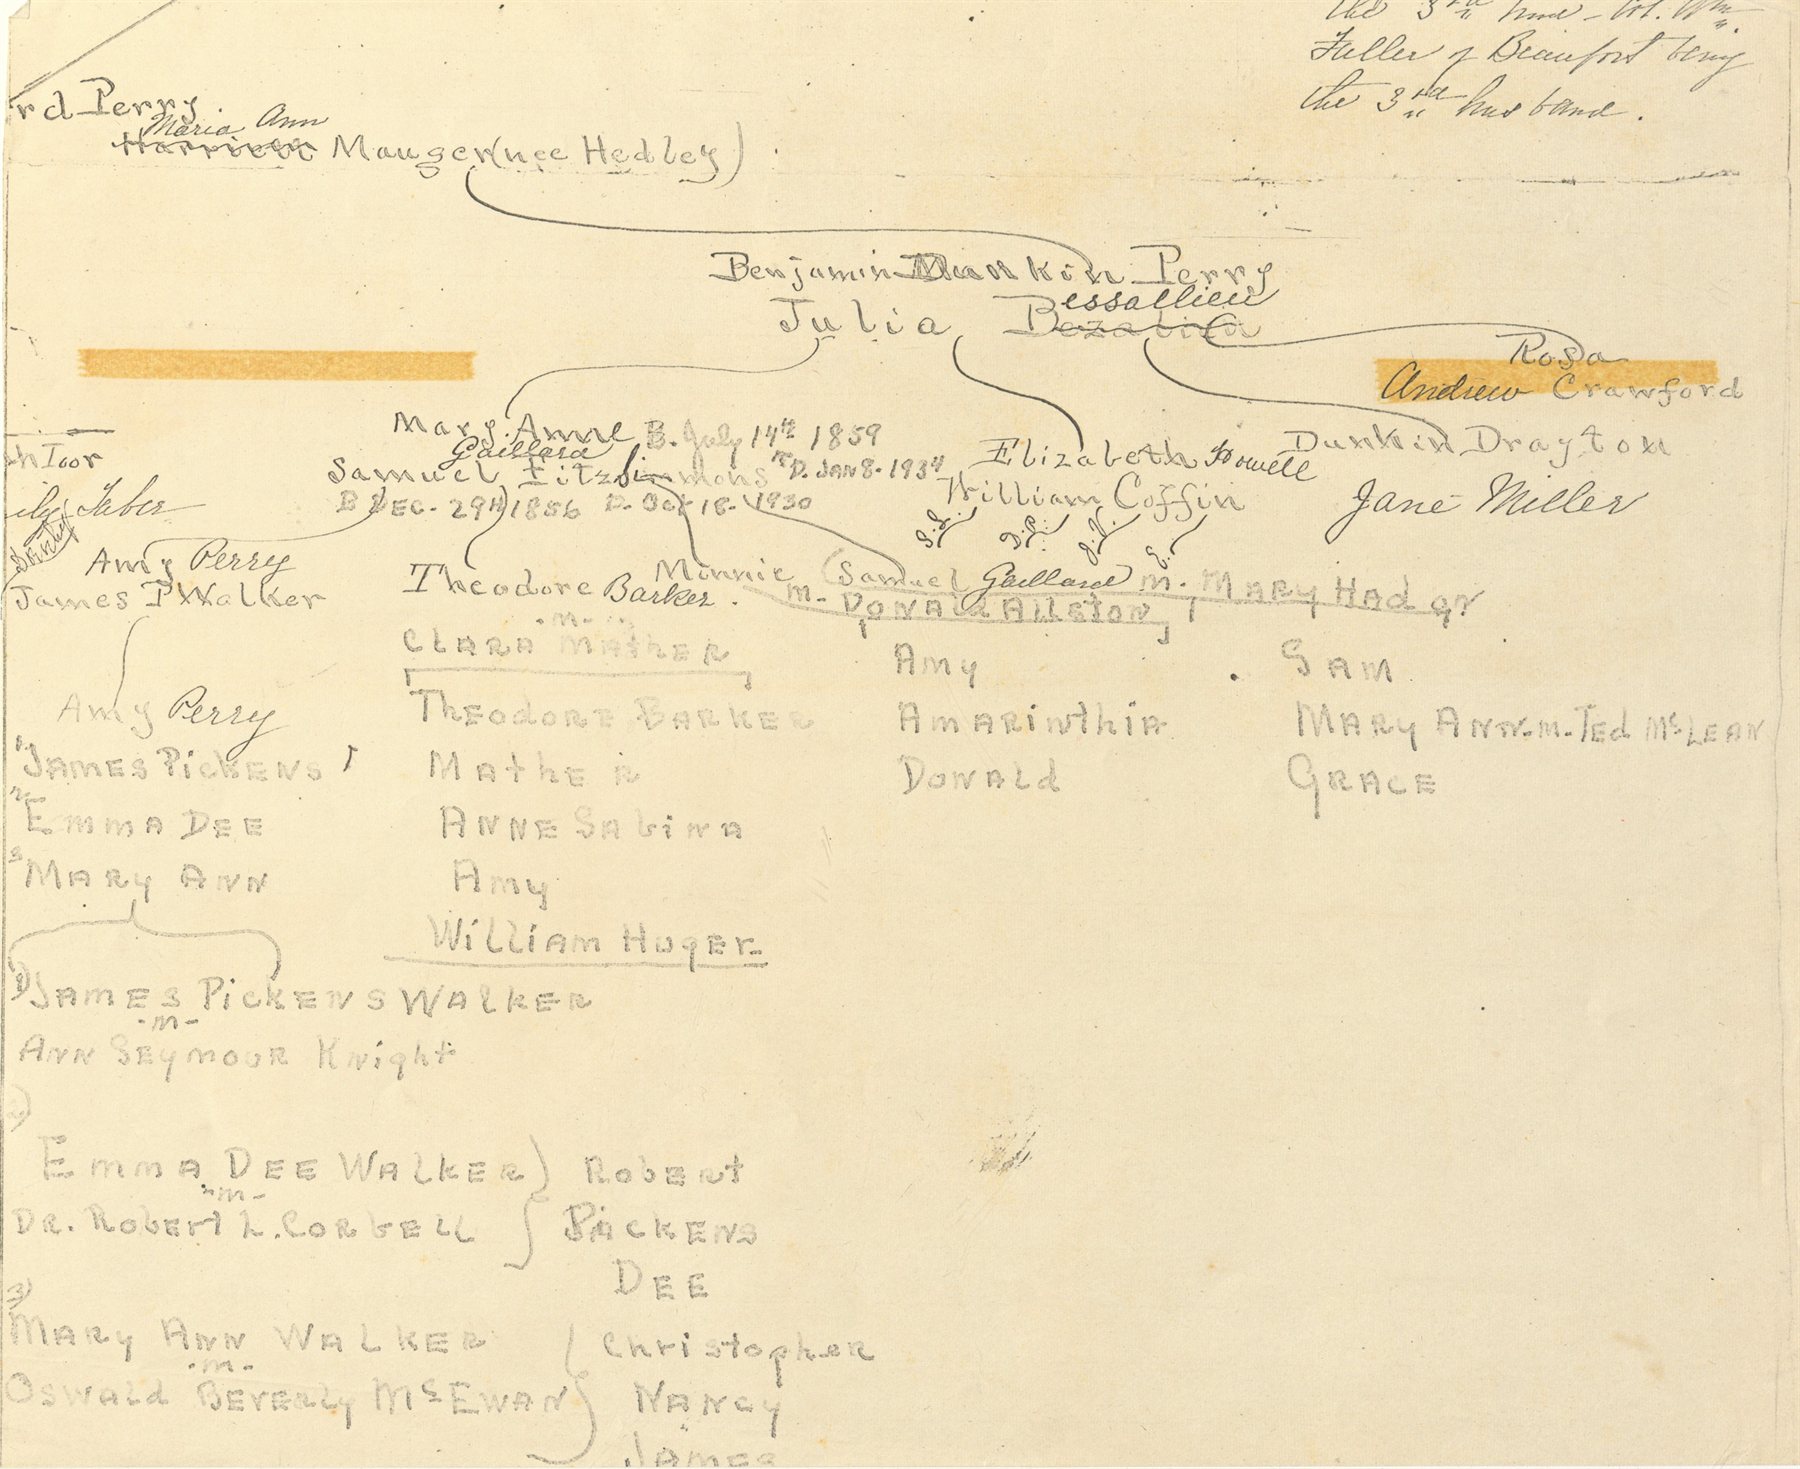 the 3rd
Fuller of Beaufort being
the 3rd husband.
rd Perry
Maria Ann
Harriett Mauger (nee Hedley)
Benjamin Perry
Julia Bessellieu
Rosa
Andrew Crawford
Mary Anne B. July 14th 1859
Gaillard
Samuel Fitzsimmons D. JAN 8. 1934
B DEC. 29th 1856 D. Oct 18. 1930
Elizabeth Howell
William Coffin
Dunkin Drayton
Jane Miller
h Toor
ily Taber
Amy Perry
James P Walker
Theodore Barker.
-m-
CLARA MATHER
Minnie
m. DONALD ALLSTON
(Samuel Gaillard m. MARY HAD
Amy Perry
JAMES PICKENS
2 EMMA DEE
3 MARY ANN
THEODORE BARKER
MATHER
ANNE SABINA
AMY
WILLIAM HUGER
AMY
AMARINTHIA
DONALD
SAM
MARY ANN-M-TED McLEAN
GRACE
1) JAMES PICKENS WALKER
-m-
ANN SEYMOUR KNIGHT
2)
EMMA DEE WALKER
-m-
DR. ROBERT L. CORBELL
ROBERT
PICKENS
DEE
3)
MARY ANN WALKER
-m-
OSWALD BEVERLY McEWAN
CHRISTOPHER
NANCY
JAMES